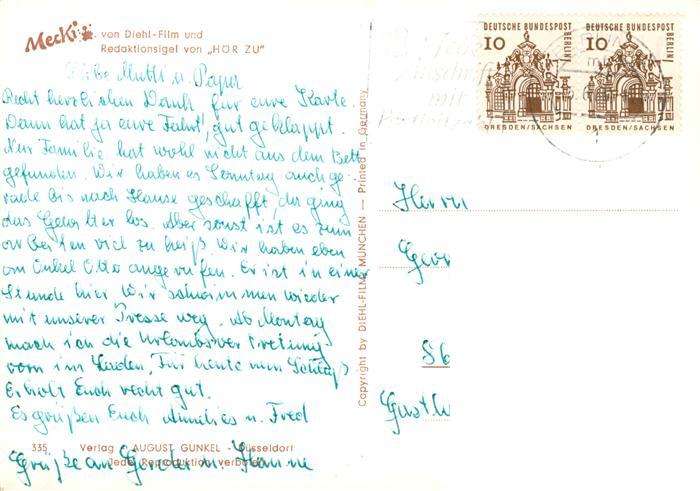 Mecki von Diehl-Film und
Redaktionsigel von „HÖR ZU"
Liebe Mutti u Papa
Recht herzlichen Dank für eure Karte.
Dann hat ja eure Fahrt, gut geklappt.
Neu Familie hat wohl nicht aus dem Bett
gefunden. Wir haben es Sonntag auch ge-
rade bis nach Hause geschafft, da ging
das Gewitter los. Aber sonst ist es zum
arbeiten viel zu heiß Wir haben eben
Onkel Otto angerufen. Er ist in einer
Stunde hier Wir schwimmen wieder
mit unserer Presse weg. Ab Montag
mach ich die Urlaubsvertretung
vorn im Laden, Für heute nun Schluß
Erholt Euch recht gut.
Es grüßen Euch u. Fred
335 Verlag AUGUST GUNKEL - Düsseldorf
Jede Reproduktion verboten
Grüße an u. Hanne
Copyright by DIEHL-FILM MÜNCHEN — Printed in Germany
DEUTSCHE BUNDESPOST
10
BERLIN
DRESDEN/SACHSEN
DEUTSCHE BUNDESPOST
10
BERLIN
DRESDEN/SACHSEN
In jede
Anschrift
mit
Herrn
Geor
86